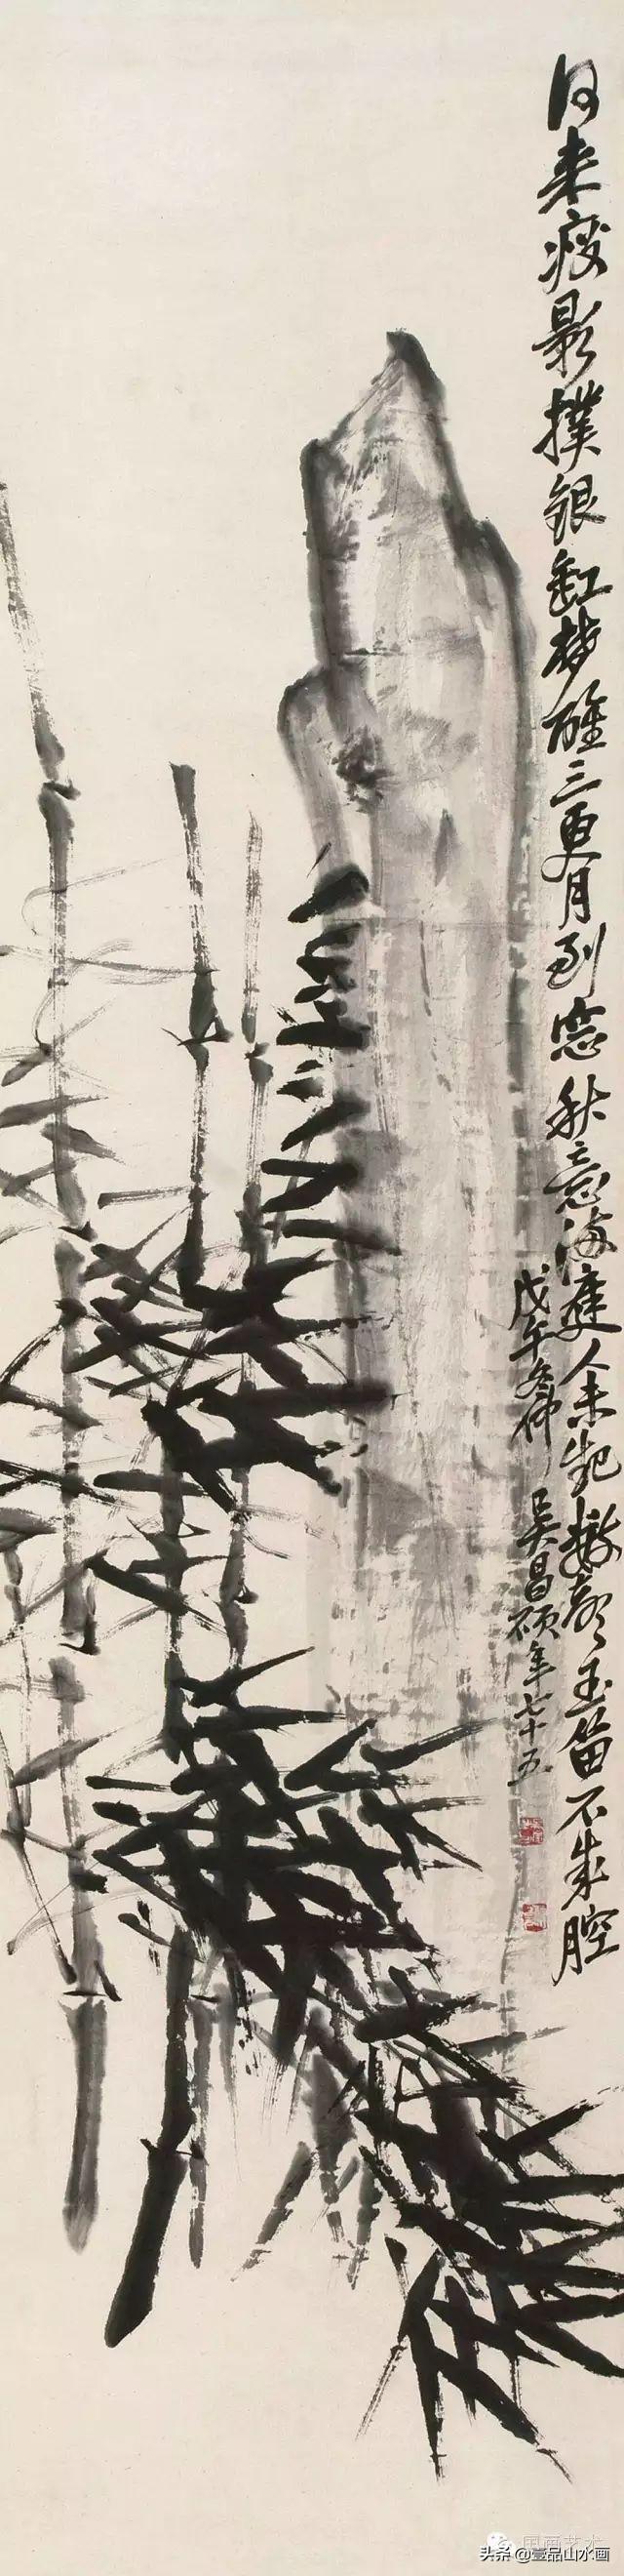 何来瘦影扑银缸梦醒三更月到窗秋意满庭人未起撅龄玉笛不成腔
戊午冬仲 吴昌硕年七十五
国画艺术
头条 @壹品山水画